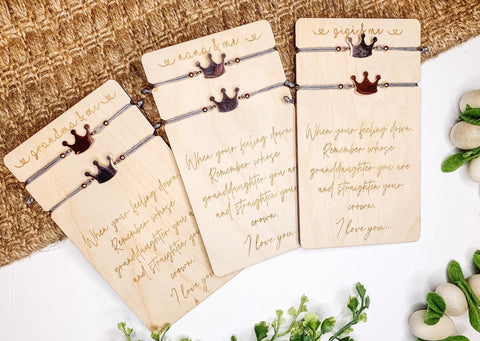 grandma & me
When your feeling down,
Remember whose
granddaughter you are
and straighten your
crown.
I love you
nana & me
When your feeling down,
Remember whose
granddaughter you are
and straighten your
crown.
I love you
gigi & me
When your feeling down,
Remember whose
granddaughter you are
and straighten your
crown.
I love you